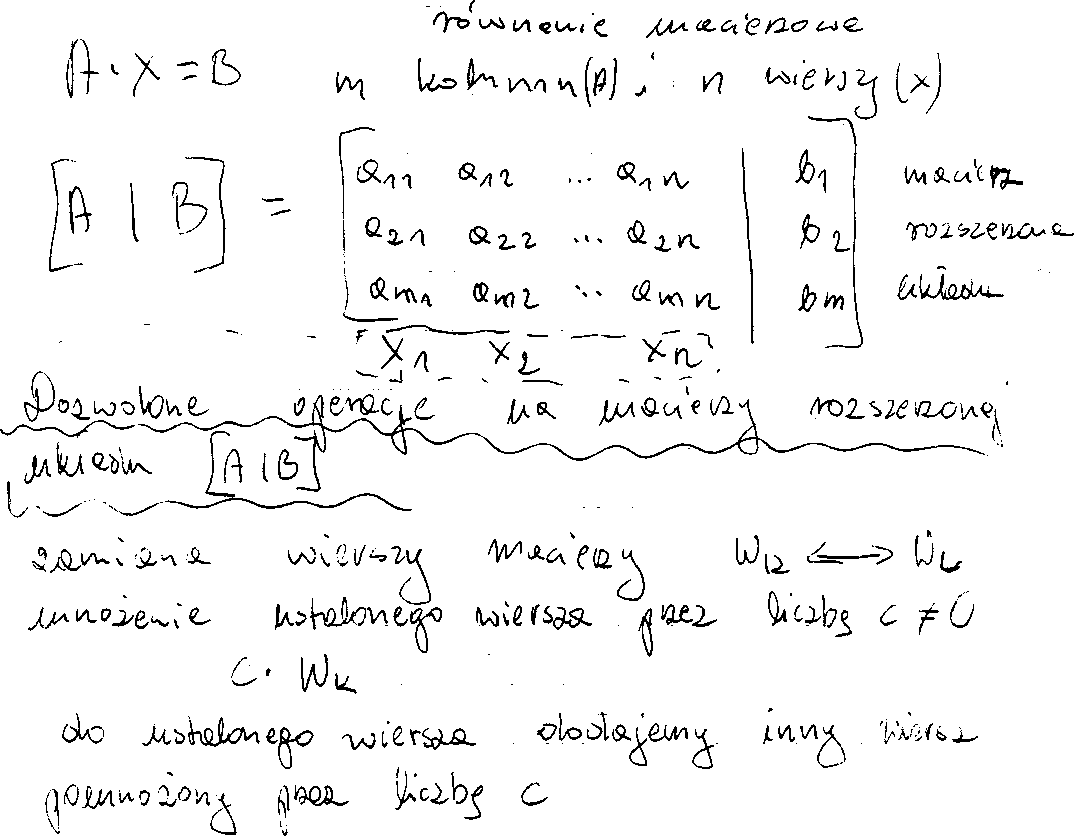 równanie macierzowe
A · X = B m kolumn (A) i n wierszy (x)
[A | B] = [a11 a12 ... a1n | b1] macierz
a21 a22 ... a2n | b2 rozszerzona
am1 am2 ... amn | bm układu
x1 x2 xn
Dozwolone operacje na macierzy rozszerzonej
układu [A | B]
zamiana wierszy macierzy Wk ⟷ WL
mnożenie ustalonego wiersza przez liczbę c ≠ 0
c · Wk
do ustalonego wiersza dodajemy inny wiersz
pomnożony przez liczbę c